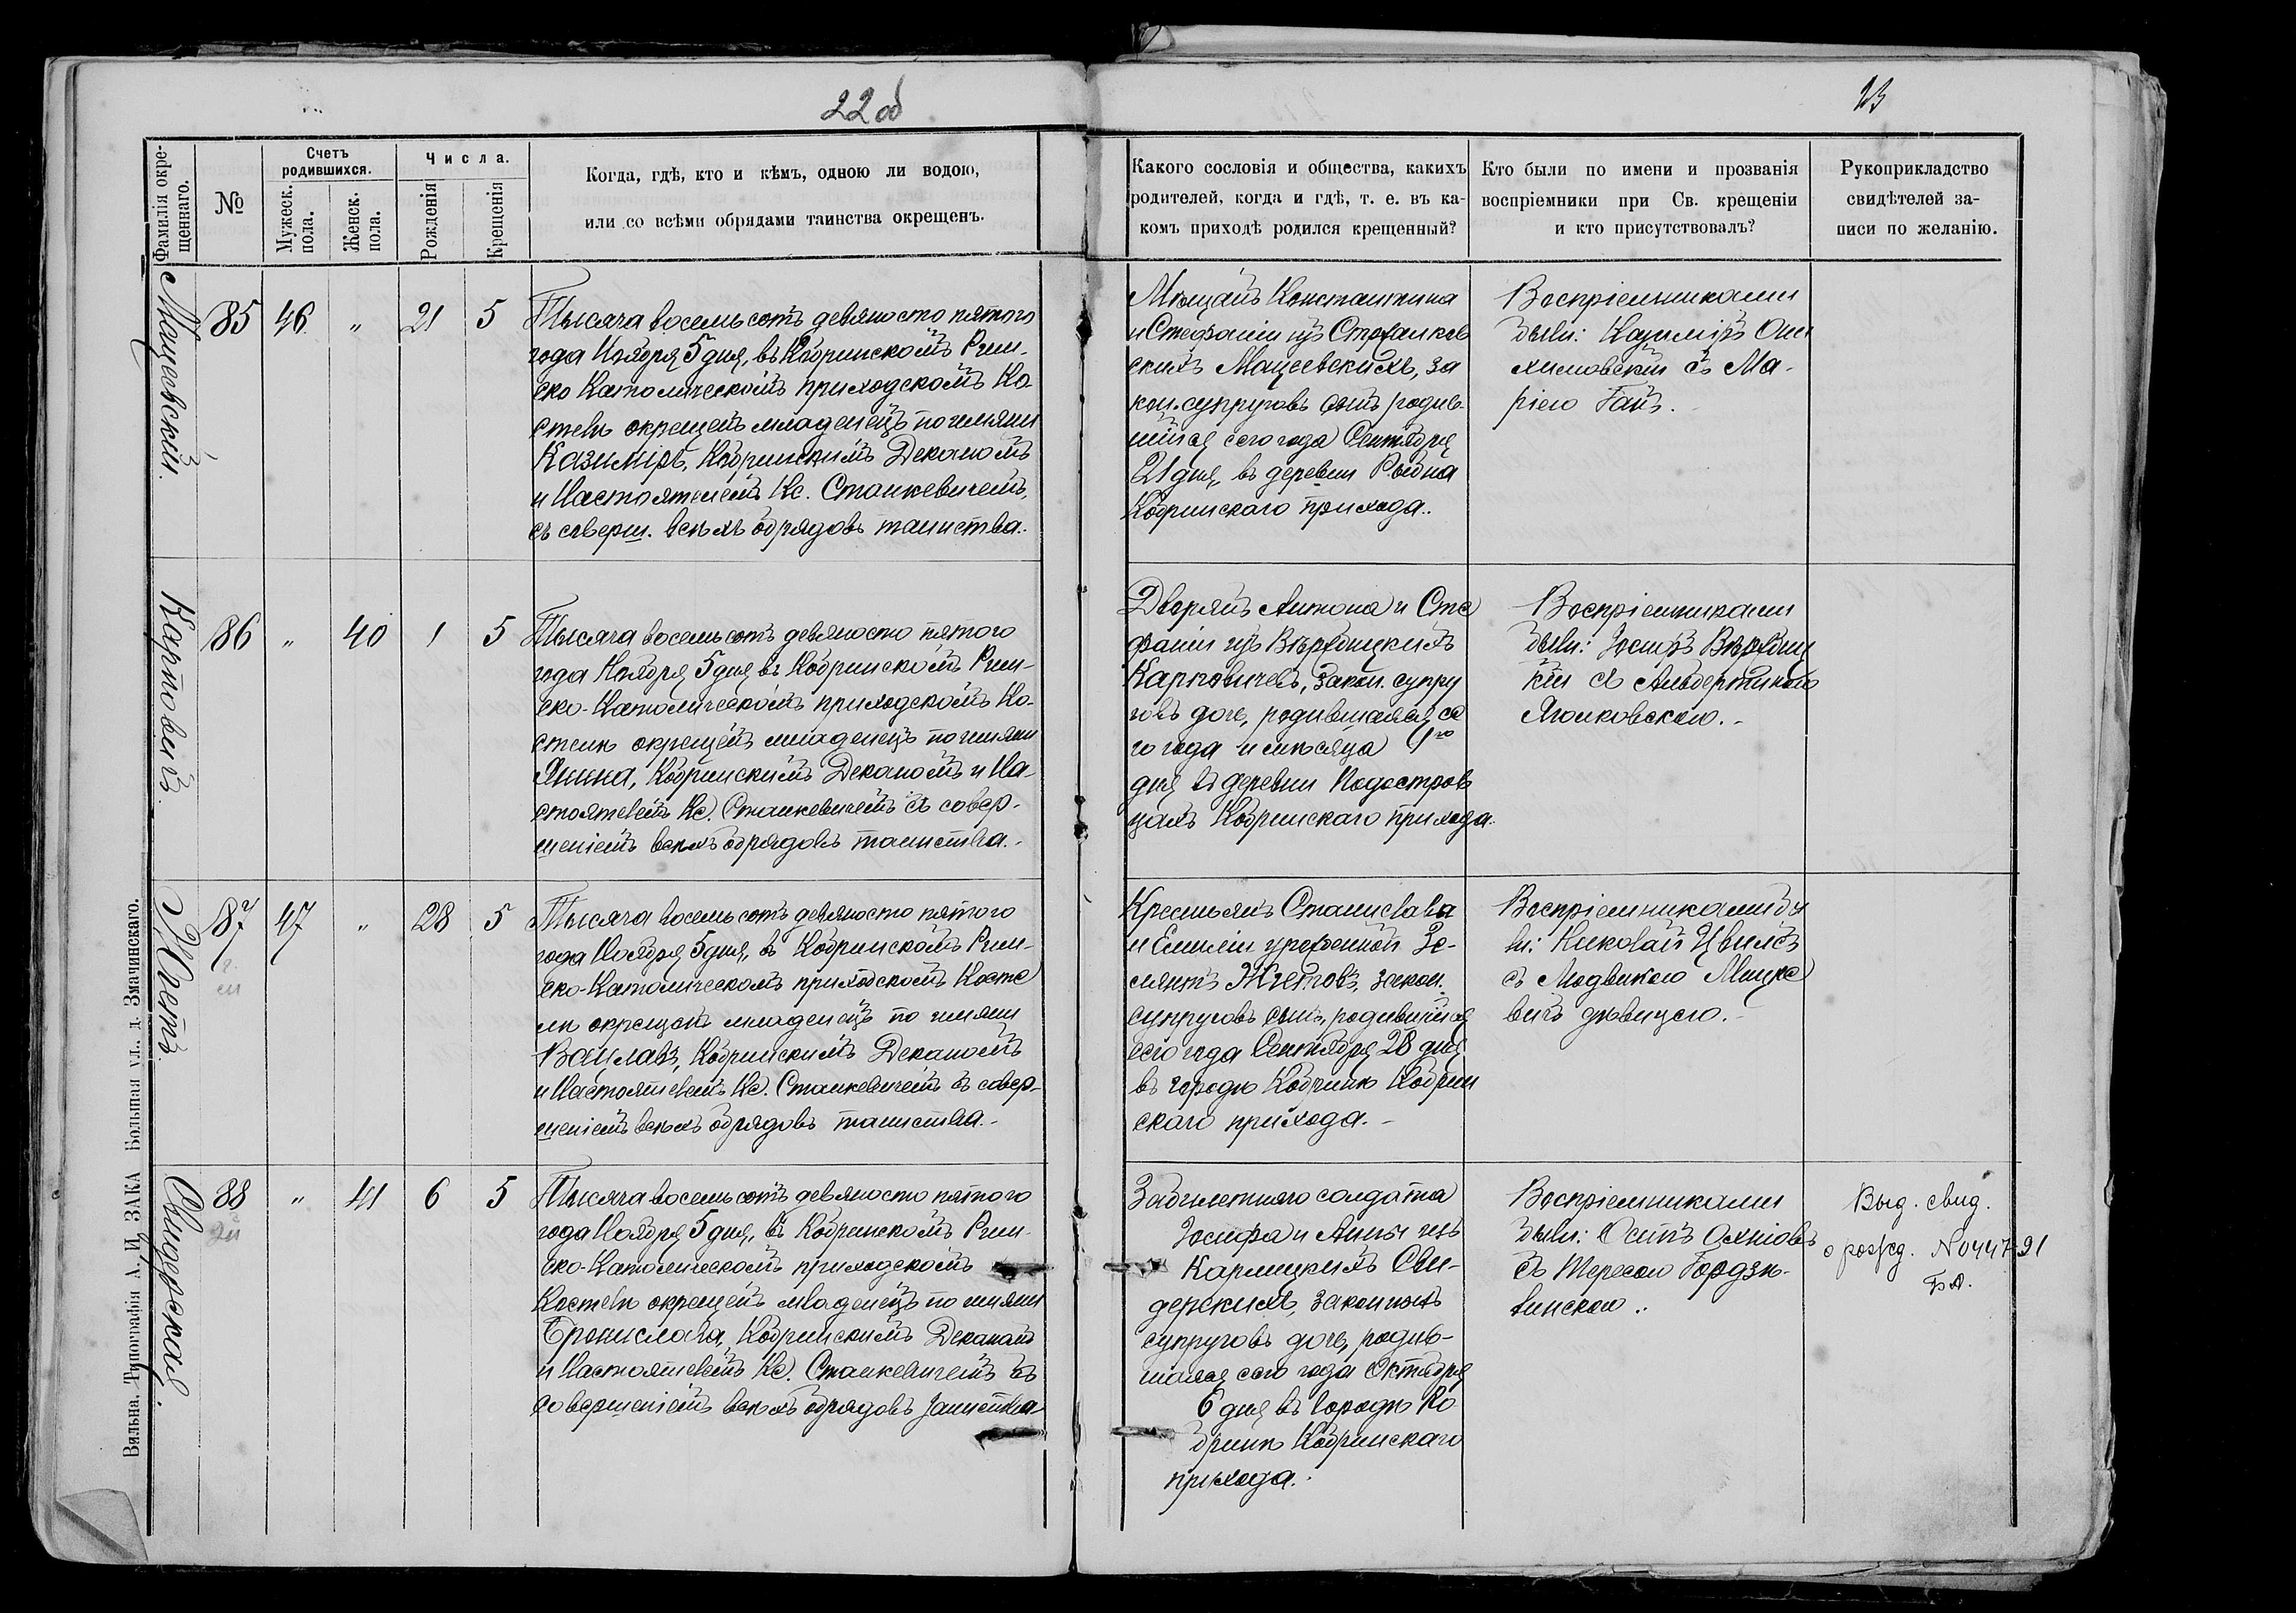 22 об
23
Фамилія окре-
щеннаго.
№
Счетъ
родившихся.
Мужеск.
пола.
Женск.
пола.
Числа.
Рожденія
Крещенія
Когда, гдѣ, кто и кѣмъ, одною ли водою,
или со всѣми обрядами таинства окрещенъ.
Какого сословія и общества, какихъ
родителей, когда и гдѣ, т. е. въ ка-
комъ приходѣ родился крещенный?
Кто были по имени и прозванія
воспріемники при Св. крещеніи
и кто присутствовалъ?
Рукоприкладство
свидѣтелей за-
писи по желанію.
Мацеевскій.
85
46
"
21
5
Тысяча восемьсотъ девяносто пятого
года Ноября 5 дня, въ Кобринскомъ Рим-
ско Католическомъ приходскомъ Ко-
стелѣ окрещенъ младенецъ по имяни
Казиміръ, Кобринскимъ Деканомъ
и Настоятелемъ Кс. Станкевичемъ,
съ соверш. всѣхъ обрядовъ таинства.
Мѣщанъ Константина
и Стефаніи изъ
скихъ Мацеевскихъ, за
кон. супруговъ сынъ родив-
шійся сего года Сентября
21 дня, въ деревни Рыбна
Кобринскаго прихода.
Воспріемниками
были: Казиміръ
съ Ма-
ріею Гаицъ.
Карповичъ
86
"
40
1
5
Тысяча восемьсотъ девяносто пятого
года Ноября 5 дня въ Кобринскомъ Рим-
ско-Католическомъ приходскомъ Ко-
стелѣ окрещенъ младенецъ по имяни
Янина, Кобринскимъ Деканомъ и На-
стоятелемъ Кс. Станкевичемъ съ совер-
шеніемъ всѣхъ обрядовъ таинства.-
Дворянъ Антона и Сте
фаніи изъ Вѣржбицкихъ
Карповичевъ, закон. супру
говъ дочь, родившаяся се
го года и мѣсяца 1го
дня въ деревни Подостров
цахъ Кобринскаго прихода.
Воспріемниками
были: Іосифъ Вѣржбиц
кій съ Альбертиною
Ягонковскою.-
Жметъ
87
47
"
28
5
Тысяча восемьсотъ девяносто пятого
года Ноября 5 дня, въ Кобринскомъ Рим-
ско-Католическомъ приходскомъ Косте
лѣ окрещенъ младенецъ по имяни
Вацлавъ, Кобринскимъ Деканомъ
и Настоятелемъ Кс. Станкевичемъ съ совер-
шеніемъ всѣхъ обрядовъ таинства.-
Крестьянъ Станислава
и Емиліи урожденной
закон.
супруговъ сынъ, родившійся
сего года Сентября 28 дня
въ городѣ Кобринѣ Кобрин
скаго прихода.-
Воспріемниками бы
ли: Николай
съ Людвикою Мицке
вичъ дѣвицею.-
Свидерская.
88
"
41
6
5
Тысяча восемьсотъ девяносто пятого
года Ноября 5 дня, въ Кобринскомъ Рим-
ско-Католическомъ приходскомъ
Костелѣ окрещенъ младенецъ по имяни
Бронислава, Кобринскимъ Деканомъ
и Настоятелемъ Кс. Станкевичемъ съ
совершеніемъ всѣхъ обрядовъ таинства
Забилетнаго солдата
Іосифа и Анны изъ
Карпицкихъ Сви-
дерскихъ, законныхъ
супруговъ дочь, родив-
шаяся сего года Октября
6 дня въ городѣ Ко
бринѣ Кобринскаго
прихода.
Воспріемниками
были: Осипъ
съ Тересою Гордзѣ-
линскою.
Выд. свид.
о рожд. № 447-91
Вильна. Типографія А. И. ЗАКА Большая ул., д. Змачинскаго.